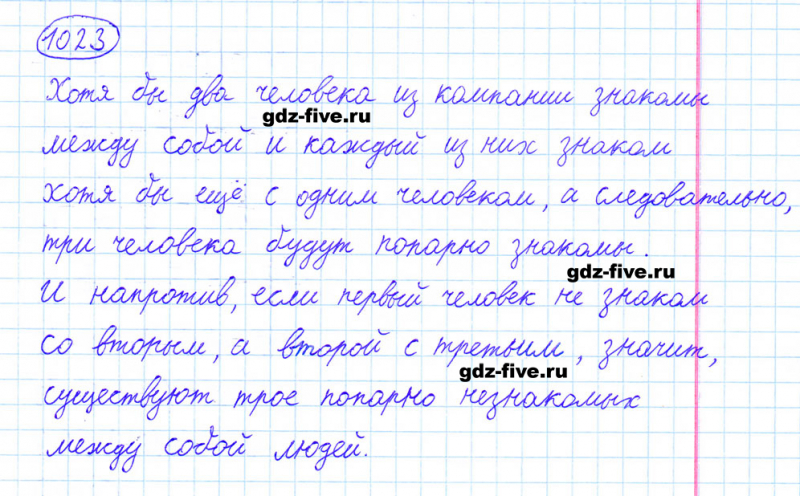 1023
Хотя бы два человека из компании знакомы
gdz-five.ru
между собой и каждый из них знаком
хотя бы ещё с одним человеком, а следовательно,
три человека будут попарно знакомы.
gdz-five.ru
И напротив, если первый человек не знаком
со вторым, а второй с третьим, значит,
gdz-five.ru
существуют трое попарно незнакомых
между собой людей.